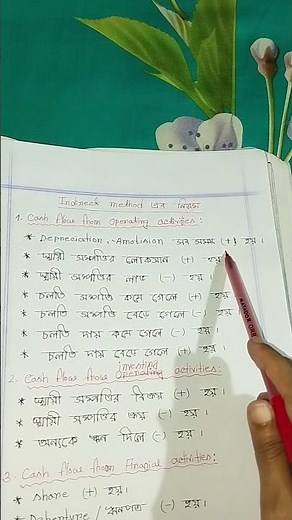 Indirect method এর নিয়ম
1. Cash flows from operating activities:
* Depreciation, Amotinion সব সময় (+) হয়।
* স্থায়ী সম্পত্তির লোকসান (+) হয়।
* স্থায়ী সম্পত্তির লাভ (-) হয়।
* চলতি সম্পত্তি কমে গেলে (+) হয়
* চলতি সম্পত্তি বেড়ে গেলে (-) হয়
* চলতি দায় কমে গেলে (-) হয়।
* চলতি দায় বেড়ে গেলে (+) হয়।
2. Cash flows from investing activities:
* স্থায়ী সম্পত্তির বিক্রয় (+) হয়।
* স্থায়ী সম্পত্তির ক্রয় (-) হয়।
* অন্যকে ঋন দিলে (-) হয়।
3. Cash flows from Finacial activities:
* Share (+) হয়।
* Debenture / ঋনপত্র (-) হয়।